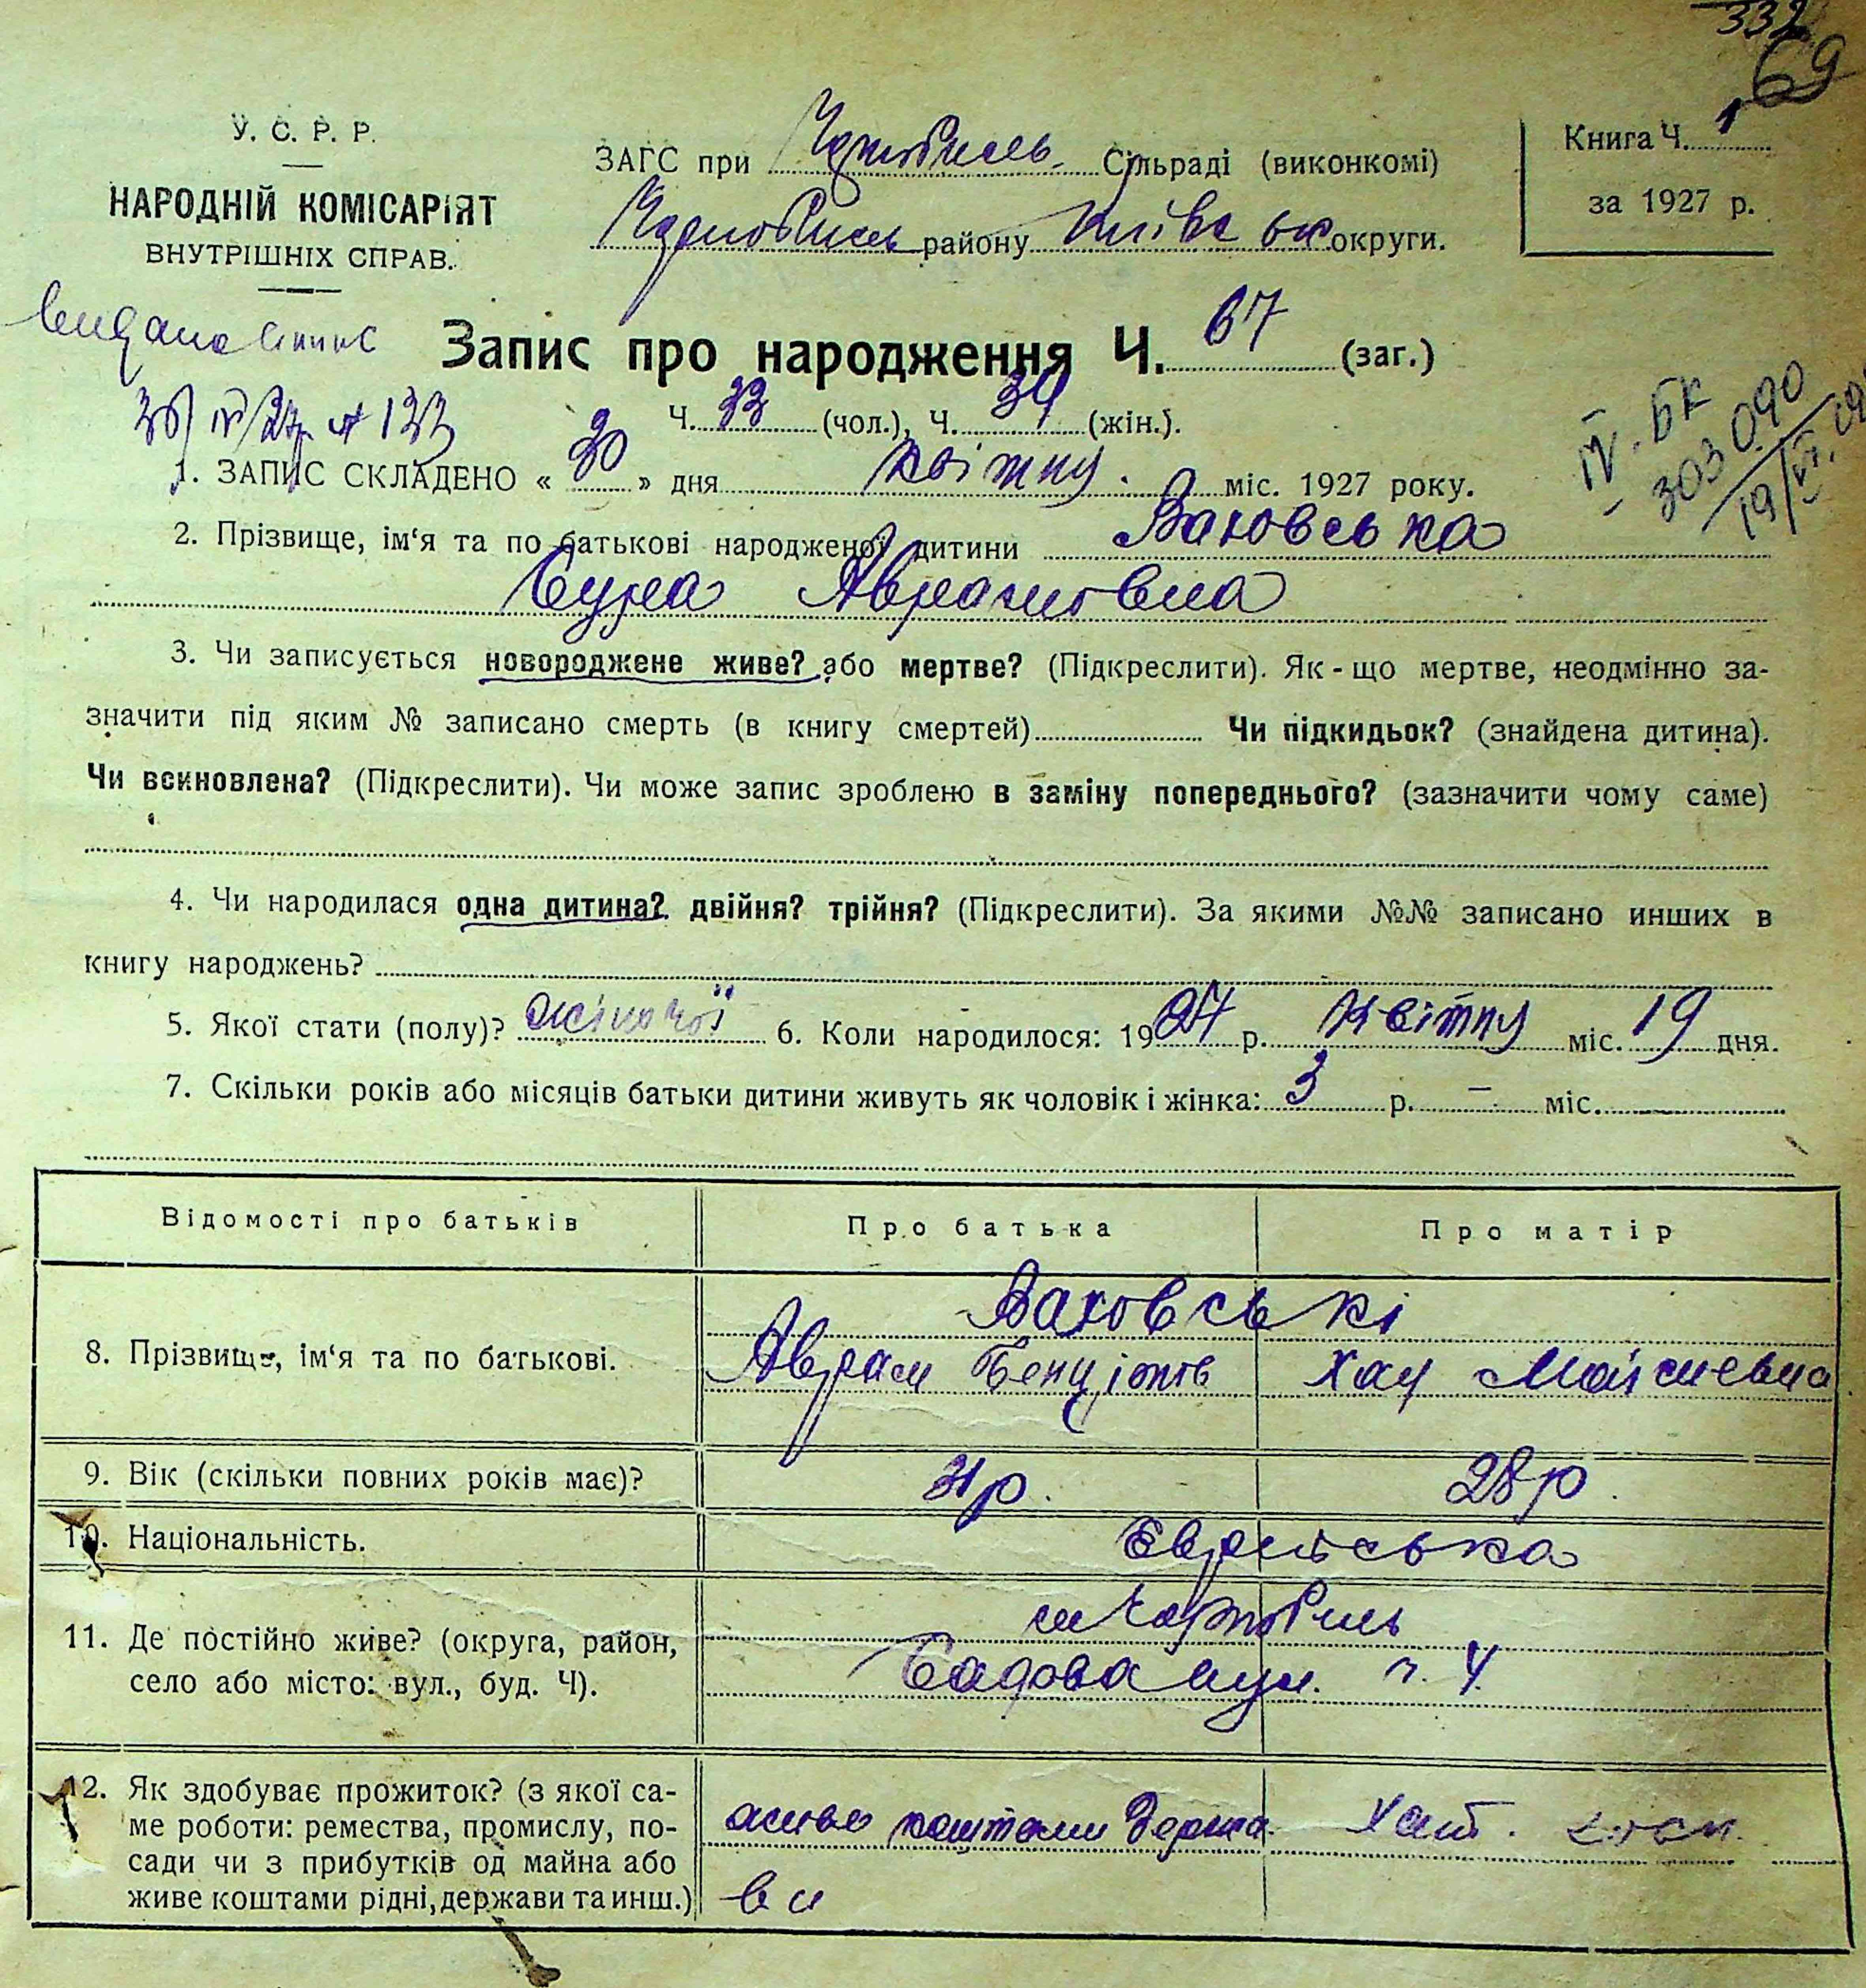 332
69
У. С. Р. Р.
НАРОДНІЙ КОМІСАРІЯТ
ВНУТРІШНІХ СПРАВ.
ЗАГС при Чорнобиль Сільраді (виконкомі)
Чорнобиль району Київськ округи.
Книга Ч. 1
за 1927 р.
видано випис
Запис про народження Ч. 67 (заг.)
Ч. 33 (чол.), Ч. 34 (жін.).
IV. БК
303090
1. ЗАПИС СКЛАДЕНО « 30 » дня квітну. міс. 1927 року.
2. Прізвище, ім‘я та по батькові народженої дитини Ваховська
Сура Аврамовна
3. Чи записується новороджене живе? або мертве? (Підкреслити). Як-що мертве, неодмінно за-
значити під яким № записано смерть (в книгу смертей) Чи підкидьок? (знайдена дитина).
Чи всиновлена? (Підкреслити). Чи може запис зроблено в заміну попереднього? (зазначити чому саме)
4. Чи народилася одна дитина? двійня? трійня? (Підкреслити). За якими №№ записано инших в
книгу народжень?
5. Якої стати (полу)? жіночої 6. Коли народилося: 1927 р. Квітну міс. 19 дня.
7. Скільки років або місяців батьки дитини живуть як чоловік і жінка: 3 р. – міс.
Відомості про батьків Про батька Про матір
8. Прізвище, ім‘я та по батькові. Ваховські
Аврам Бенціонів Хая Мойсиевна
9. Вік (скільки повних років має)? 31 р. 28 р.
10. Національність. Єврейська
11. Де постійно живе? (округа, район,
село або місто: вул., буд. Ч). м Чорнобиль
Садова вул. ч. 4
12. Як здобуває прожиток? (з якої са-
ме роботи: ремества, промислу, по-
сади чи з прибутків од майна або
живе коштами рідні, держави та инш.)
живе коштами держа
ви
Хат. госп.